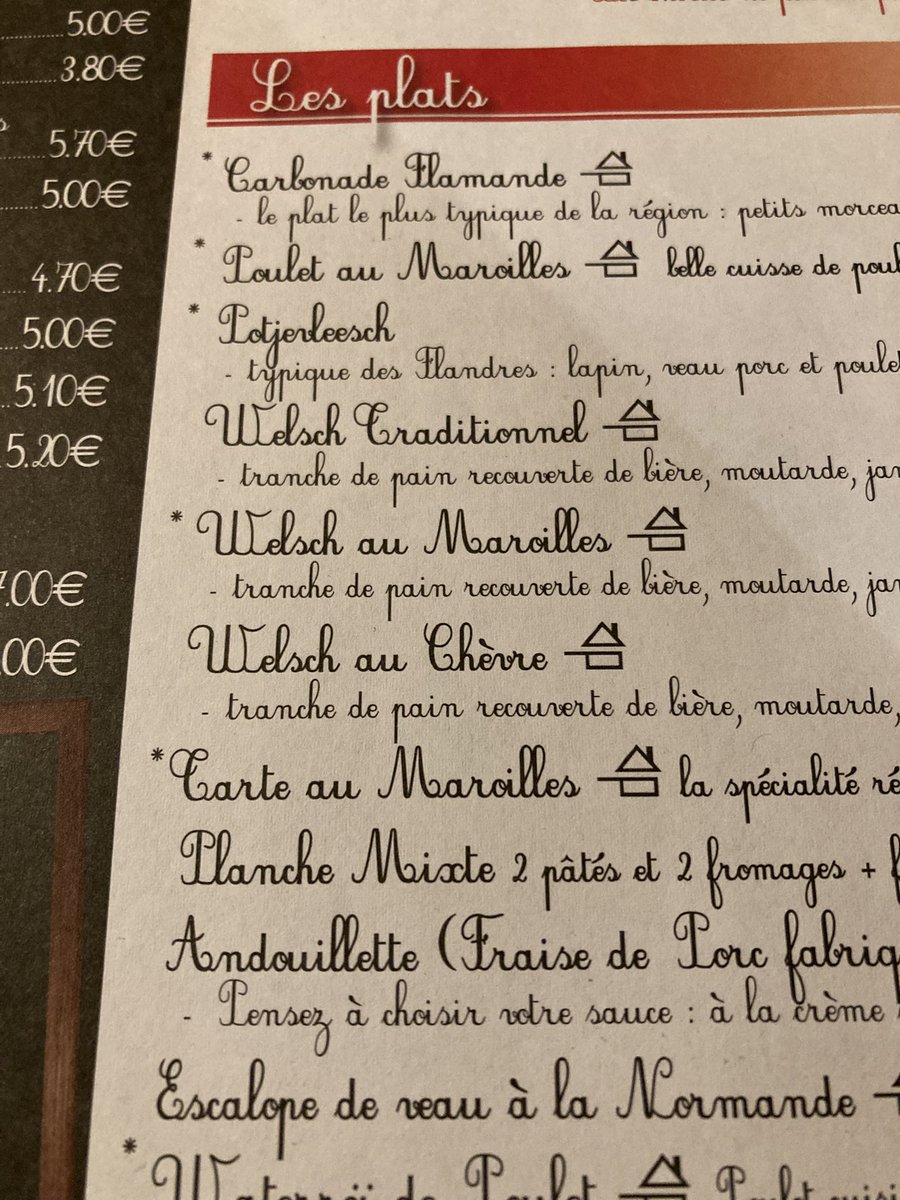 5.00€
3.80€
5.70€
5.00€
4.70€
5.00€
5.10€
5.20€
7.00€
.00€
Les plats
* Carbonade Flamande
- le plat le plus typique de la région : petits morcea
* Poulet au Maroilles belle cuisse de poul
* Potjevleesch
- typique des Flandres : lapin, veau porc et poule
Welsch Traditionnel
- tranche de pain recouverte de bière, moutarde, ja
* Welsch au Maroilles
- tranche de pain recouverte de bière, moutarde, ja
Welsch au Chèvre
- tranche de pain recouverte de bière, moutarde,
* Tarte au Maroilles la spécialité ré
Planche Mixte 2 pâtés et 2 fromages +
Andouillette (Fraise de Porc fabriq
- Pensez à choisir votre sauce : à la crème
Escalope de veau à la Normande
* Waterzoï de Poulet